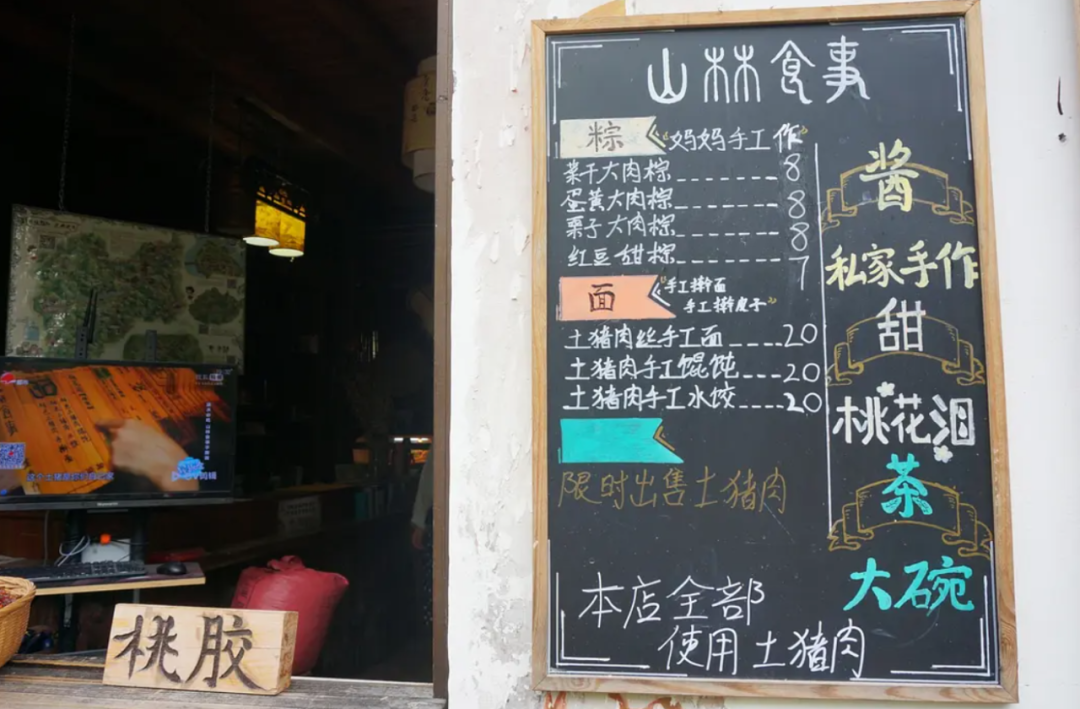 山林食事
粽 "妈妈手工作"
菜干大肉粽 8
蛋黄大肉粽 8
栗子大肉粽 8
红豆甜粽 7
面 "手工擀面
手工擀皮子"
土猪肉丝手工面 20
土猪肉手工馄饨 20
土猪肉手工水饺 20
限时出售土猪肉
本店全部
使用土猪肉
酱
私家手作
甜
桃花泪
茶
大碗
桃胶